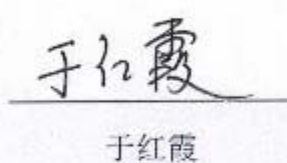 于红霞
于红霞